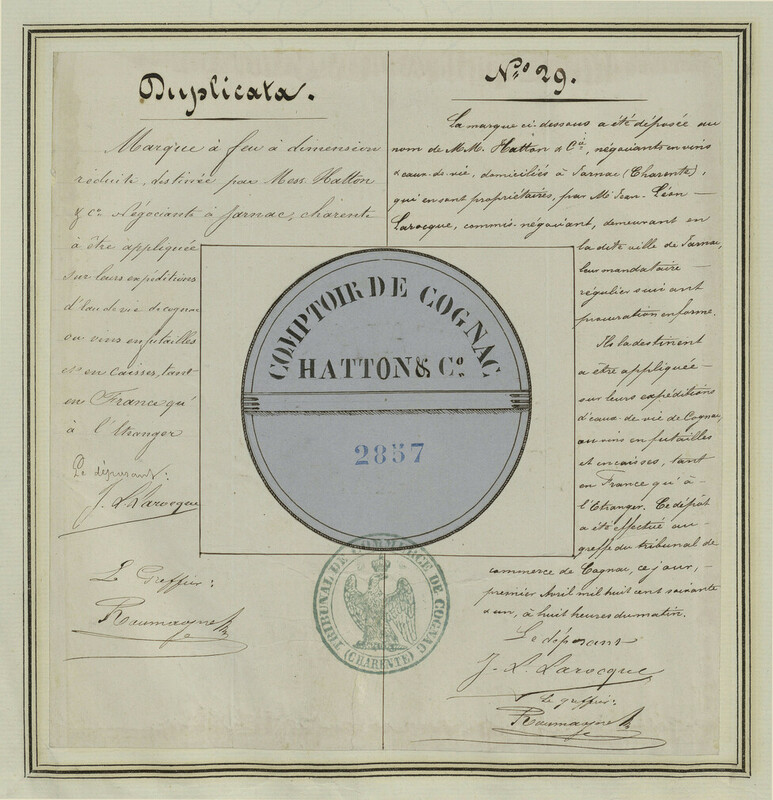 Duplicata.
Marque à feu à dimension
réduite, destinée par Mess. Hatton
& Co. Négociants à Jarnac, charente
à être appliquée
sur leurs expéditions
d'eau de vie de cognac
ou vins en futailles
et en caisses, tant
en France qu'
à l'étranger
Le déposant:
J. L. Larocque
Le Greffier:
No 29.
La marque ci-dessous a été déposée au
nom de M.M. Hatton & Cie, négociants en vins
& eaux-de-vie, domiciliés à Jarnac (Charente),
qui en sont propriétaires, par Mr Jean-Léon
Larocque, commis-négociant, demeurant en
la dite ville de Jarnac,
leur mandataire
régulier suivant
procuration en forme.
Ils la destinent
à être appliquée
sur leurs expéditions
d'eaux-de-vie de Cognac,
ou vins en futailles
et en caisses, tant
en France qu'à
l'Etranger. Ce dépôt
a été effectué au
greffe du tribunal de
commerce de Cognac, ce jour,
premier Avril mil huit cent soixante
& un, à huit heures du matin.
Le déposant
J. L. Larocque
Le greffier:
COMPTOIR DE COGNAC
HATTON & Co.
2857
TRIBUNAL DE COMMERCE DE COGNAC
(CHARENTE)